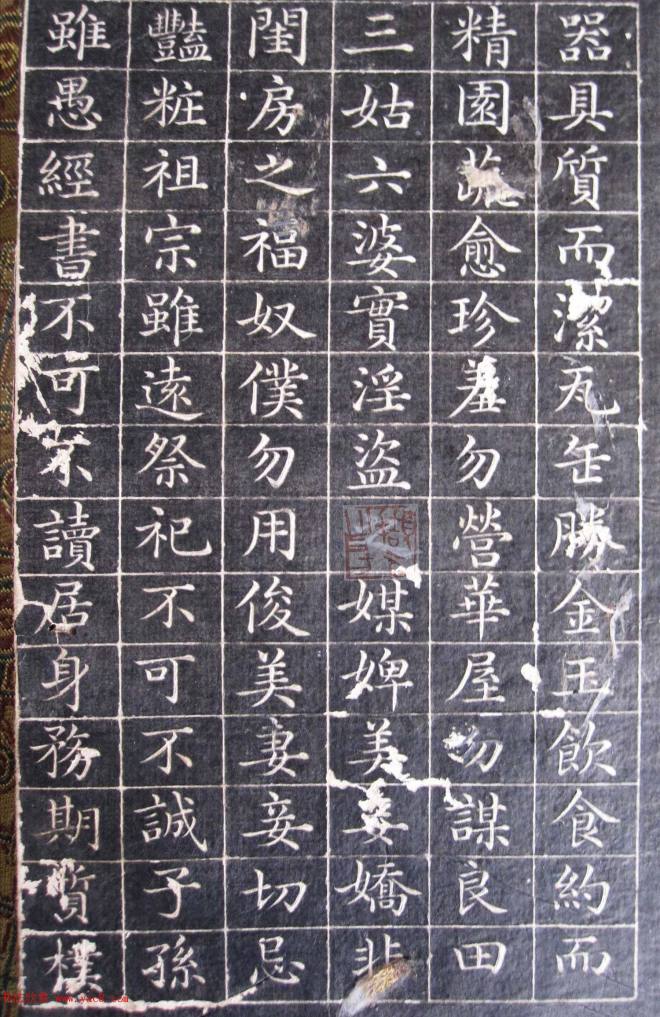 器具質而潔瓦缶勝金玉飲食約而
精園蔬愈珍羞勿營華屋勿謀良田
三姑六婆實淫盜之媒婢美妾嬌非
閨房之福奴僕勿用俊美妻妾切忌
豔粧祖宗雖遠祭祀不可不誠子孫
雖愚經書不可不讀居身務期質樸
www.yac8.com